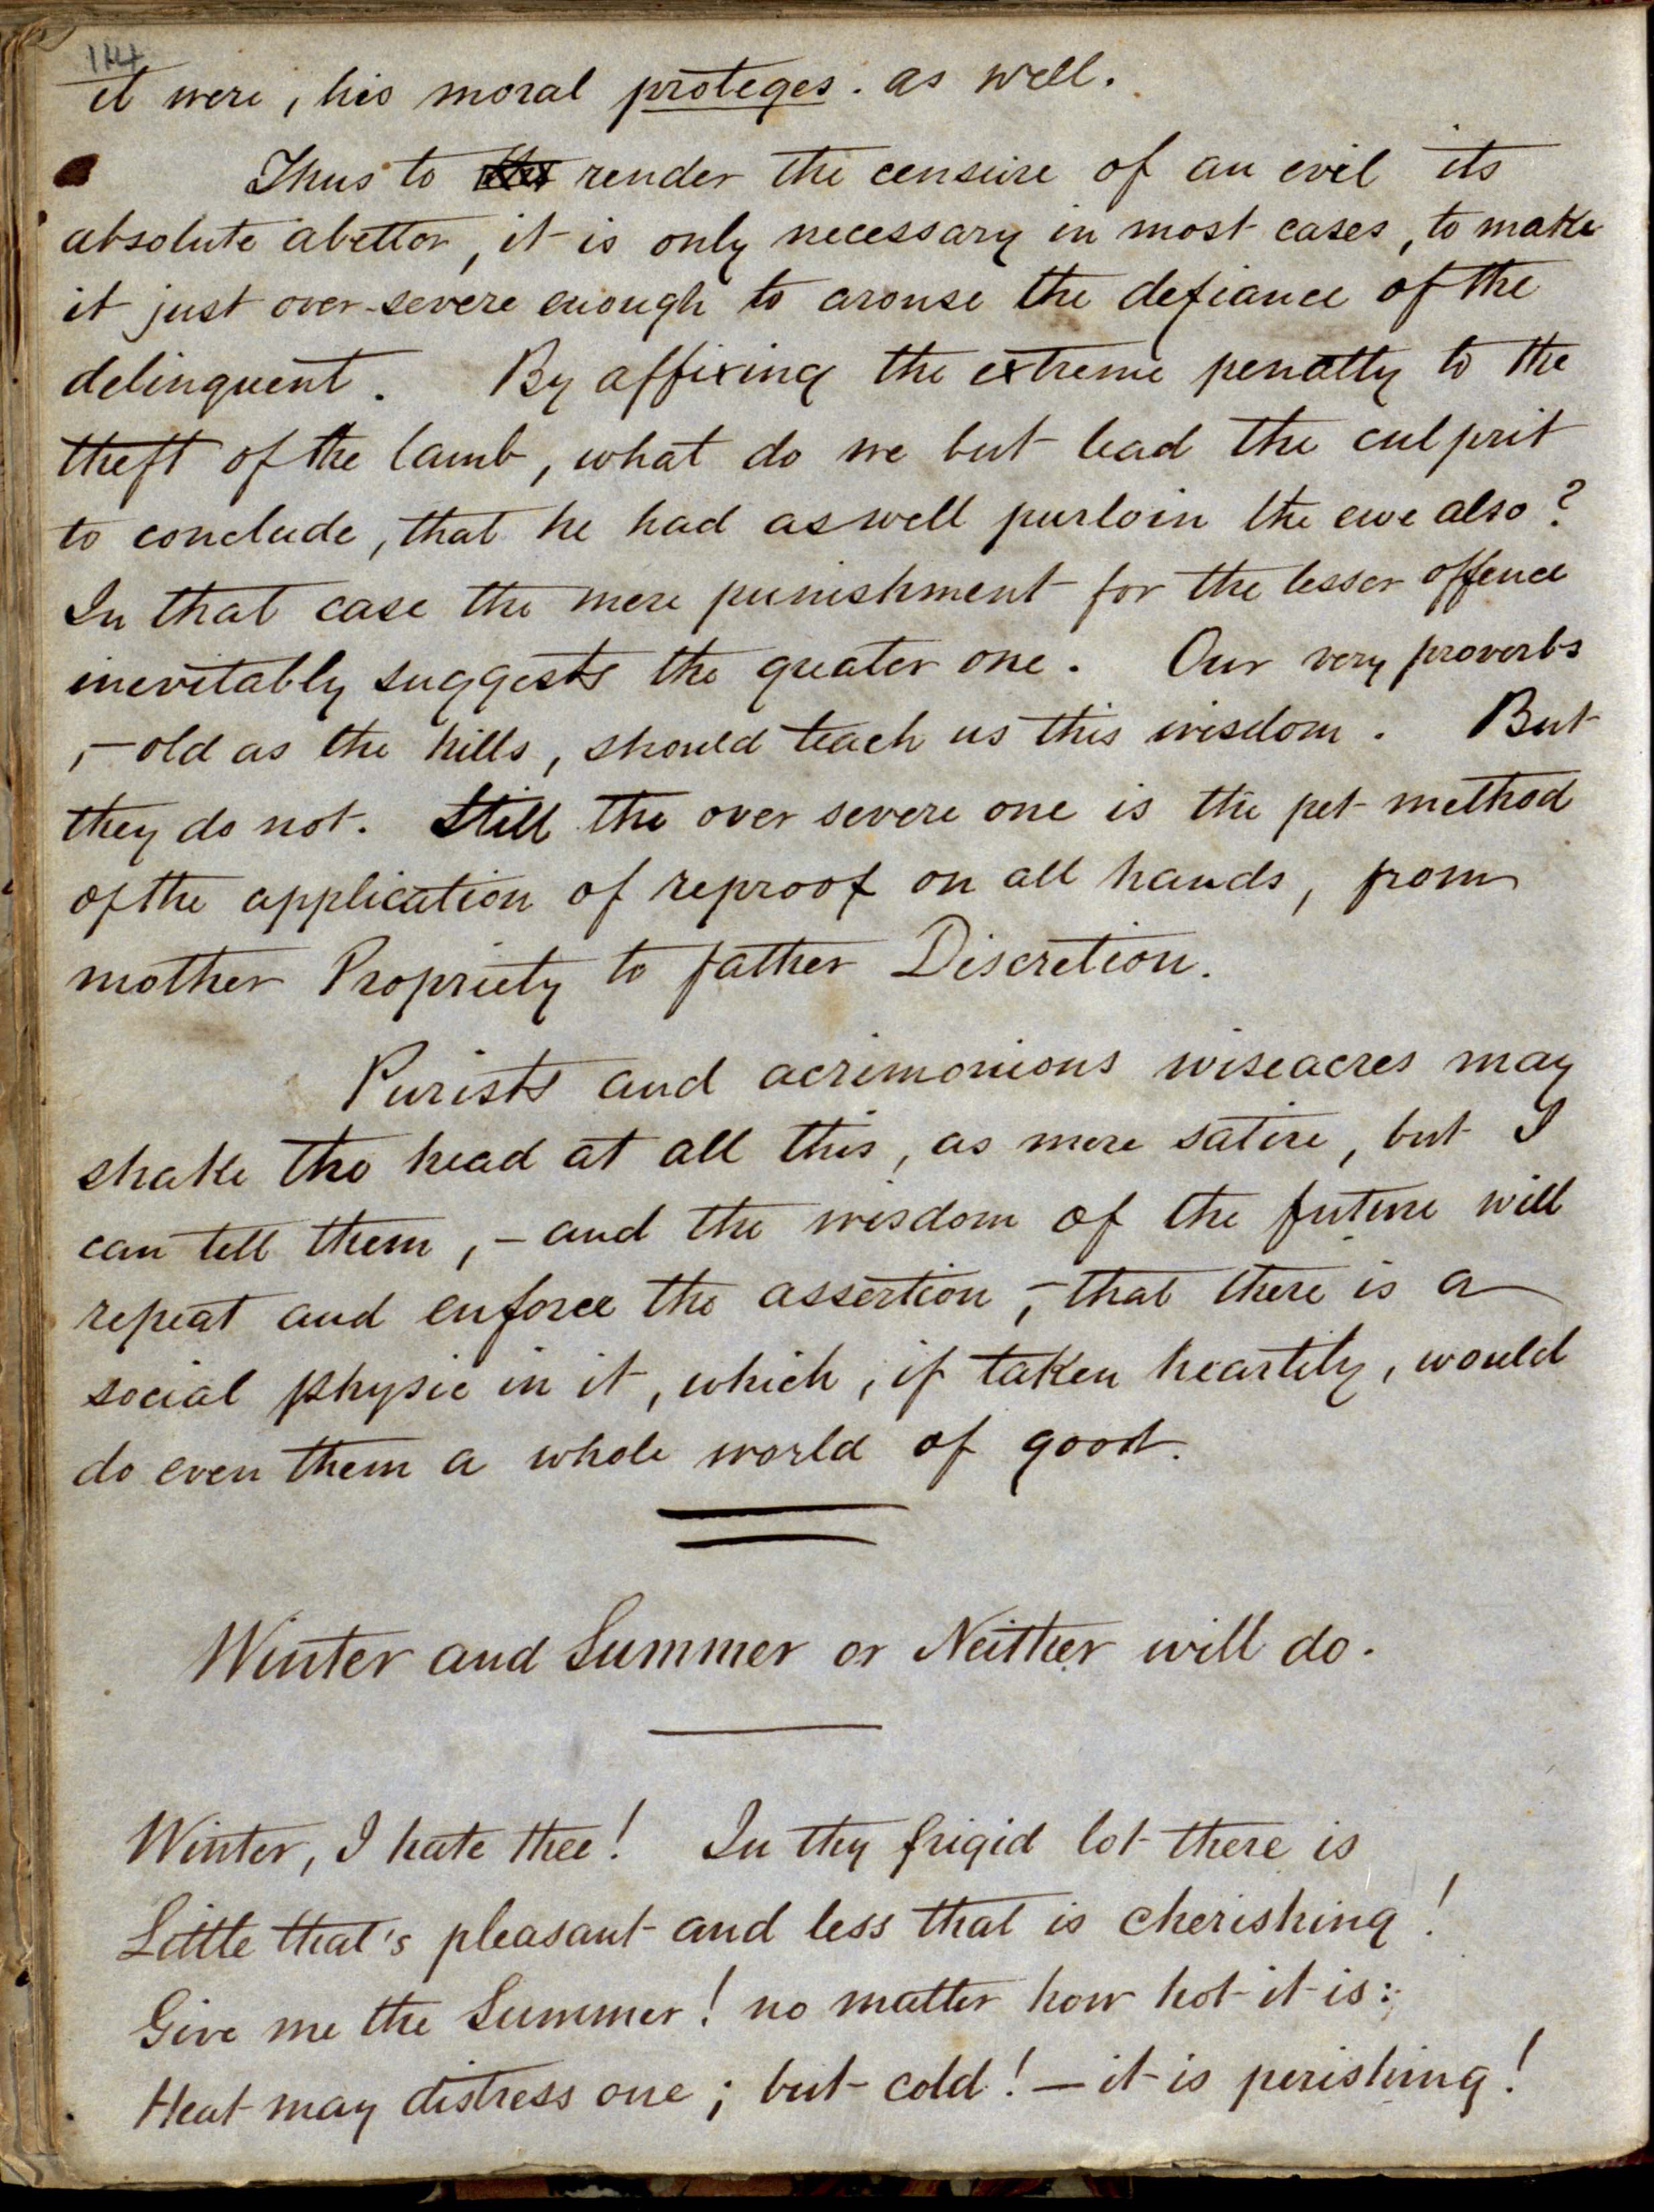 114
it were, his moral proteges. as well.
Thus to render the censure of an evil its
absolute abettor, it is only necessary in most cases, to make
it just over-severe enough to arouse the defiance of the
delinquent. By affixing the extreme penalty to the
theft of the lamb, what do we but lead the culprit
to conclude, that he had as well purloin the ewe also?
In that case the mere punishment for the lesser offence
inevitably suggests the greater one. Our very proverbs
,- old as the hills, should teach us this wisdom. But
they do not. Still the over severe one is the pet method
of the application of reproof on all hands, from
mother Propriety to father Discretion.
Purists and acrimonious wiseacres may
shake the head at all this, as mere satire, but I
can tell them, - and the wisdom of the future will
repeat and enforce the assertion, - that there is a
social physic in it, which, if taken heartily, would
do even them a whole world of good.
Winter and Summer or Neither will do.
Winter, I hate thee! In thy frigid lot there is
Little that's pleasant and less that is cherishing!
Give me the Summer! no matter how hot it is:
Heat may distress one; but cold! — it is perishing!